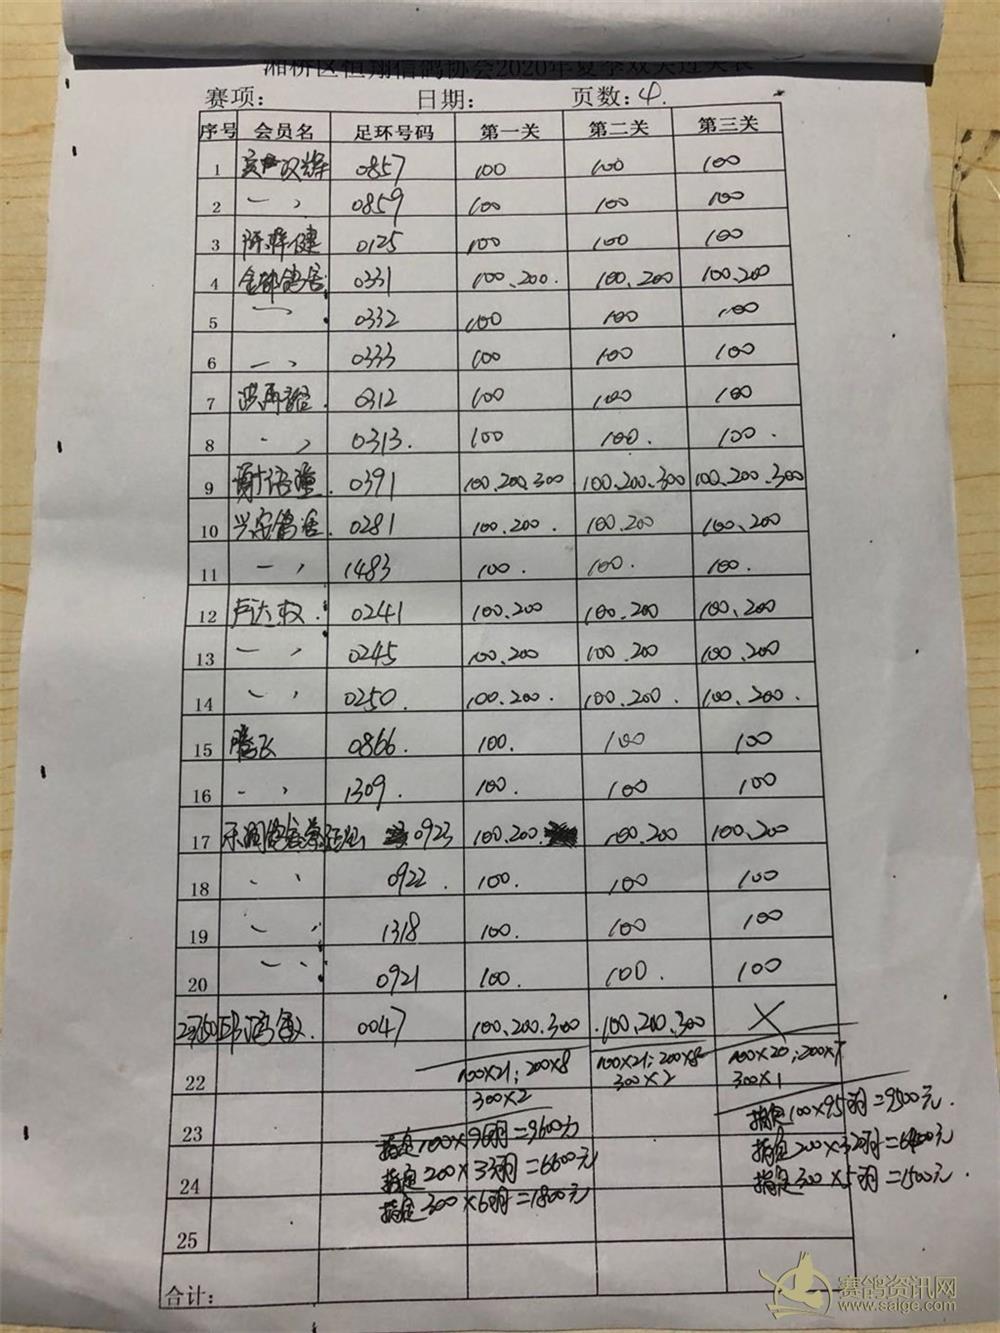 湘桥区恒翔信鸽协会2020年夏季双关过关表
赛项: 日期: 页数: 4.
序号 会员名 足环号码 第一关 第二关 第三关
1 0857 100 100 100
2 一 、 0859 100 100 100
3 陈 健 0125 100 100 100
4 金 鸽舍 0331 100、200. 100、200 100、200
5 一、 0332 100 100 100
6 一、 0333 100 100 100
7 洪再 . 0312 100 100 100
8 一 、 0313. 100 100. 100.
9 谢 . 0391 100、200、300 100、200、300 100、200、300
10 兴安鸽舍. 0281 100、200. 100、200 100、200
11 一 、 1483 100. 100. 100.
12 卢达 . 0241 100、200 100、200 100、200
13 一 、 0245 100、200 100、200 100、200
14 一 、 0250. 100、200. 100、200. 100、200.
15 腾飞 0866. 100. 100 100
16 一 、 1309. 100. 100 100
17 0923 100、200. 100、200 100、200
18 、 、 0922. 100. 100 100
19 、 、 1318 100. 100 100
20 一 、 0921 100. 100. 100
0047 100、200、300 100、200、300 ×
22 100×21; 200×8 100×21; 200×8 100×20; 200×7
300×2 300×2 300×1
23 指定100×96羽=9600元 指定100×95羽=9500元.
24 指定200×33羽=6600元 指定200×32羽=6400元
指定300×6羽=1800元 指定300×5羽=1500元
25
合计:
赛鸽资讯网
www.saige.com